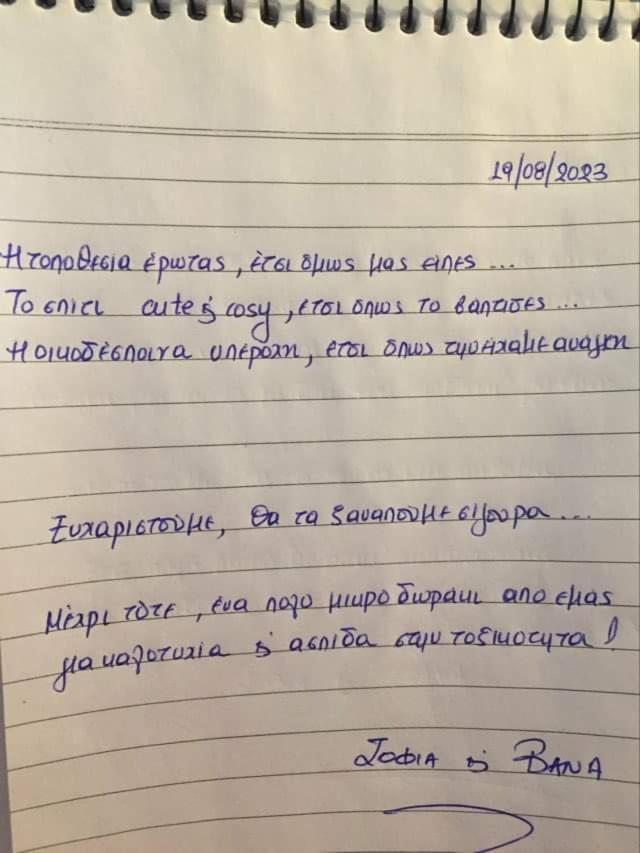 19/08/2023
Η τοποθεσια έρωτας, έτσι όμως μας ειπες...
Το σπιτι cute & cosy, ετσι οπως το βαπτισες...
Η οικοδέσποινα υπέροχη, έτσι όπως την είχαμε αναγκη
Ευχαριστούμε, θα τα ξαναπούμε σιγουρα...
Μέχρι τότε, ένα πολυ μικρο δωρακι απο εμας
για καλοτυχια & ασπιδα στην τοξικοτητα!
Σοφια & Βανα